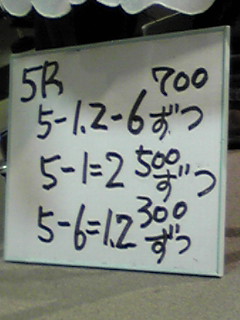 5R 700
5-1.2-6ずつ
5-1=2 500ずつ
5-6=1.2 300ずつ